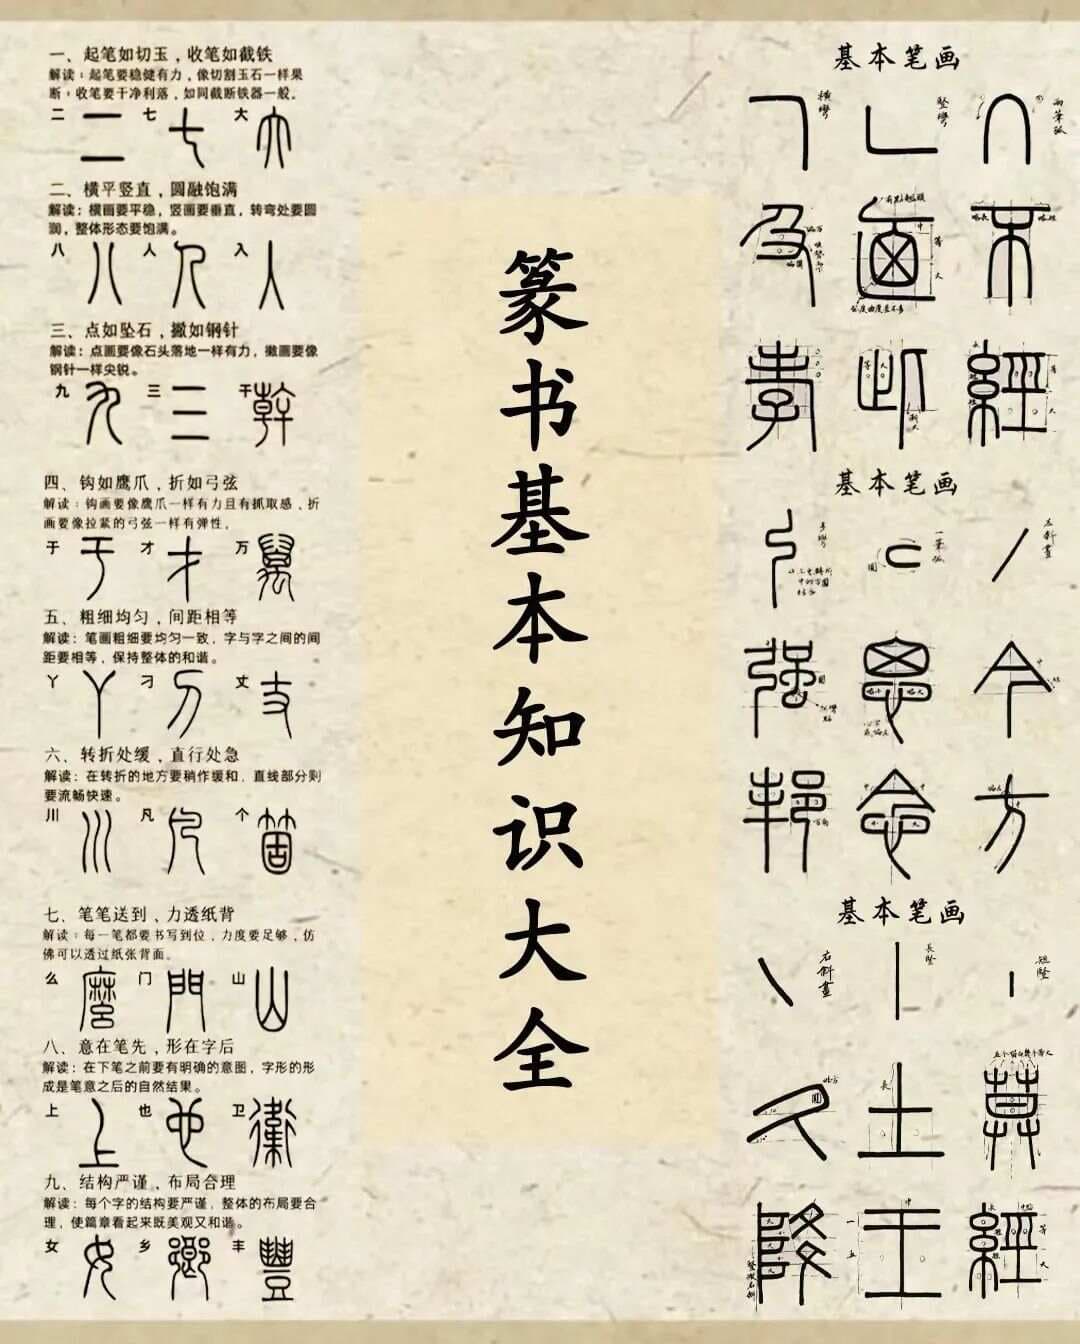 一、起笔如切玉，收笔如截铁
解读：起笔要稳健有力，像切割玉石一样果
断；收笔要干净利落，如同截断铁器一般。
二 七 大
二、横平竖直，圆融饱满
解读：横画要平稳，竖画要垂直，转弯处要圆
润，整体形态要饱满。
八 人 入
三、点如坠石，撇如钢针
解读：点画要像石头落地一样有力，撇画要像
钢针一样尖锐。
九 三 干
四、钩如鹰爪，折如弓弦
解读：钩画要像鹰爪一样有力且有抓取感，折
画要像拉紧的弓弦一样有弹性。
于 才 万
五、粗细均匀，间距相等
解读：笔画粗细要均匀一致，字与字之间的间
距要相等，保持整体的和谐。
丫 刁 丈
六、转折处缓，直行处急
解读：在转折的地方要稍作缓和，直线部分则
要流畅快速。
川 凡 个
七、笔笔送到，力透纸背
解读：每一笔都要书写到位，力度要足够，仿
佛可以透过纸张背面。
么 门 山
八、意在笔先，形在字后
解读：在下笔之前要有明确的意图，字形的形
成是笔意之后的自然结果。
上 也 卫
九、结构严谨、布局合理
解读：每个字的结构要严谨，整体的布局要合
理，使篇章看起来既美观又和谐。
女 乡 丰
篆书基本知识大全
基本笔画
横彎 竖彎 两筆弧
基本笔画
多彎 一筆弧 左斜畫
强 恩 今
邦 念 方
基本笔画
右斜畫 長竪 短竪
久 土 莫
王 經